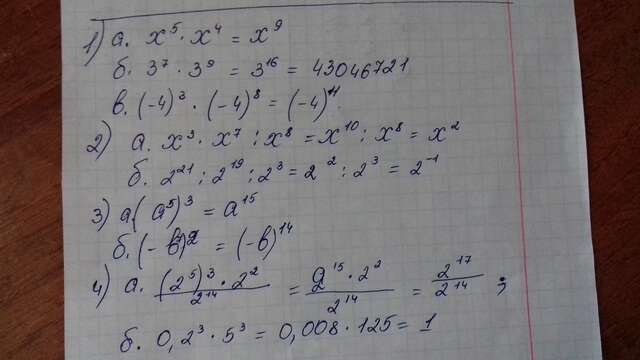 1) а. x⁵ · x⁴ = x⁹
б. 3⁷ · 3⁹ = 3¹⁶ = 43046721
в. (-4)³ · (-4)⁸ = (-4)¹¹
2) а. x³ · x⁷ : x⁸ = x¹⁰ : x⁸ = x²
б. 2²¹ : 2¹⁹ : 2³ = 2² : 2³ = 2⁻¹
3) а (а⁵)³ = а¹⁵
б. (-b)² = (-b)¹⁴
4) а. (2⁵)³ · 2² / 2¹⁴ = 2¹⁵ · 2² / 2¹⁴ = 2¹⁷ / 2¹⁴ ;
б. 0,2³ · 5³ = 0,008 · 125 = 1